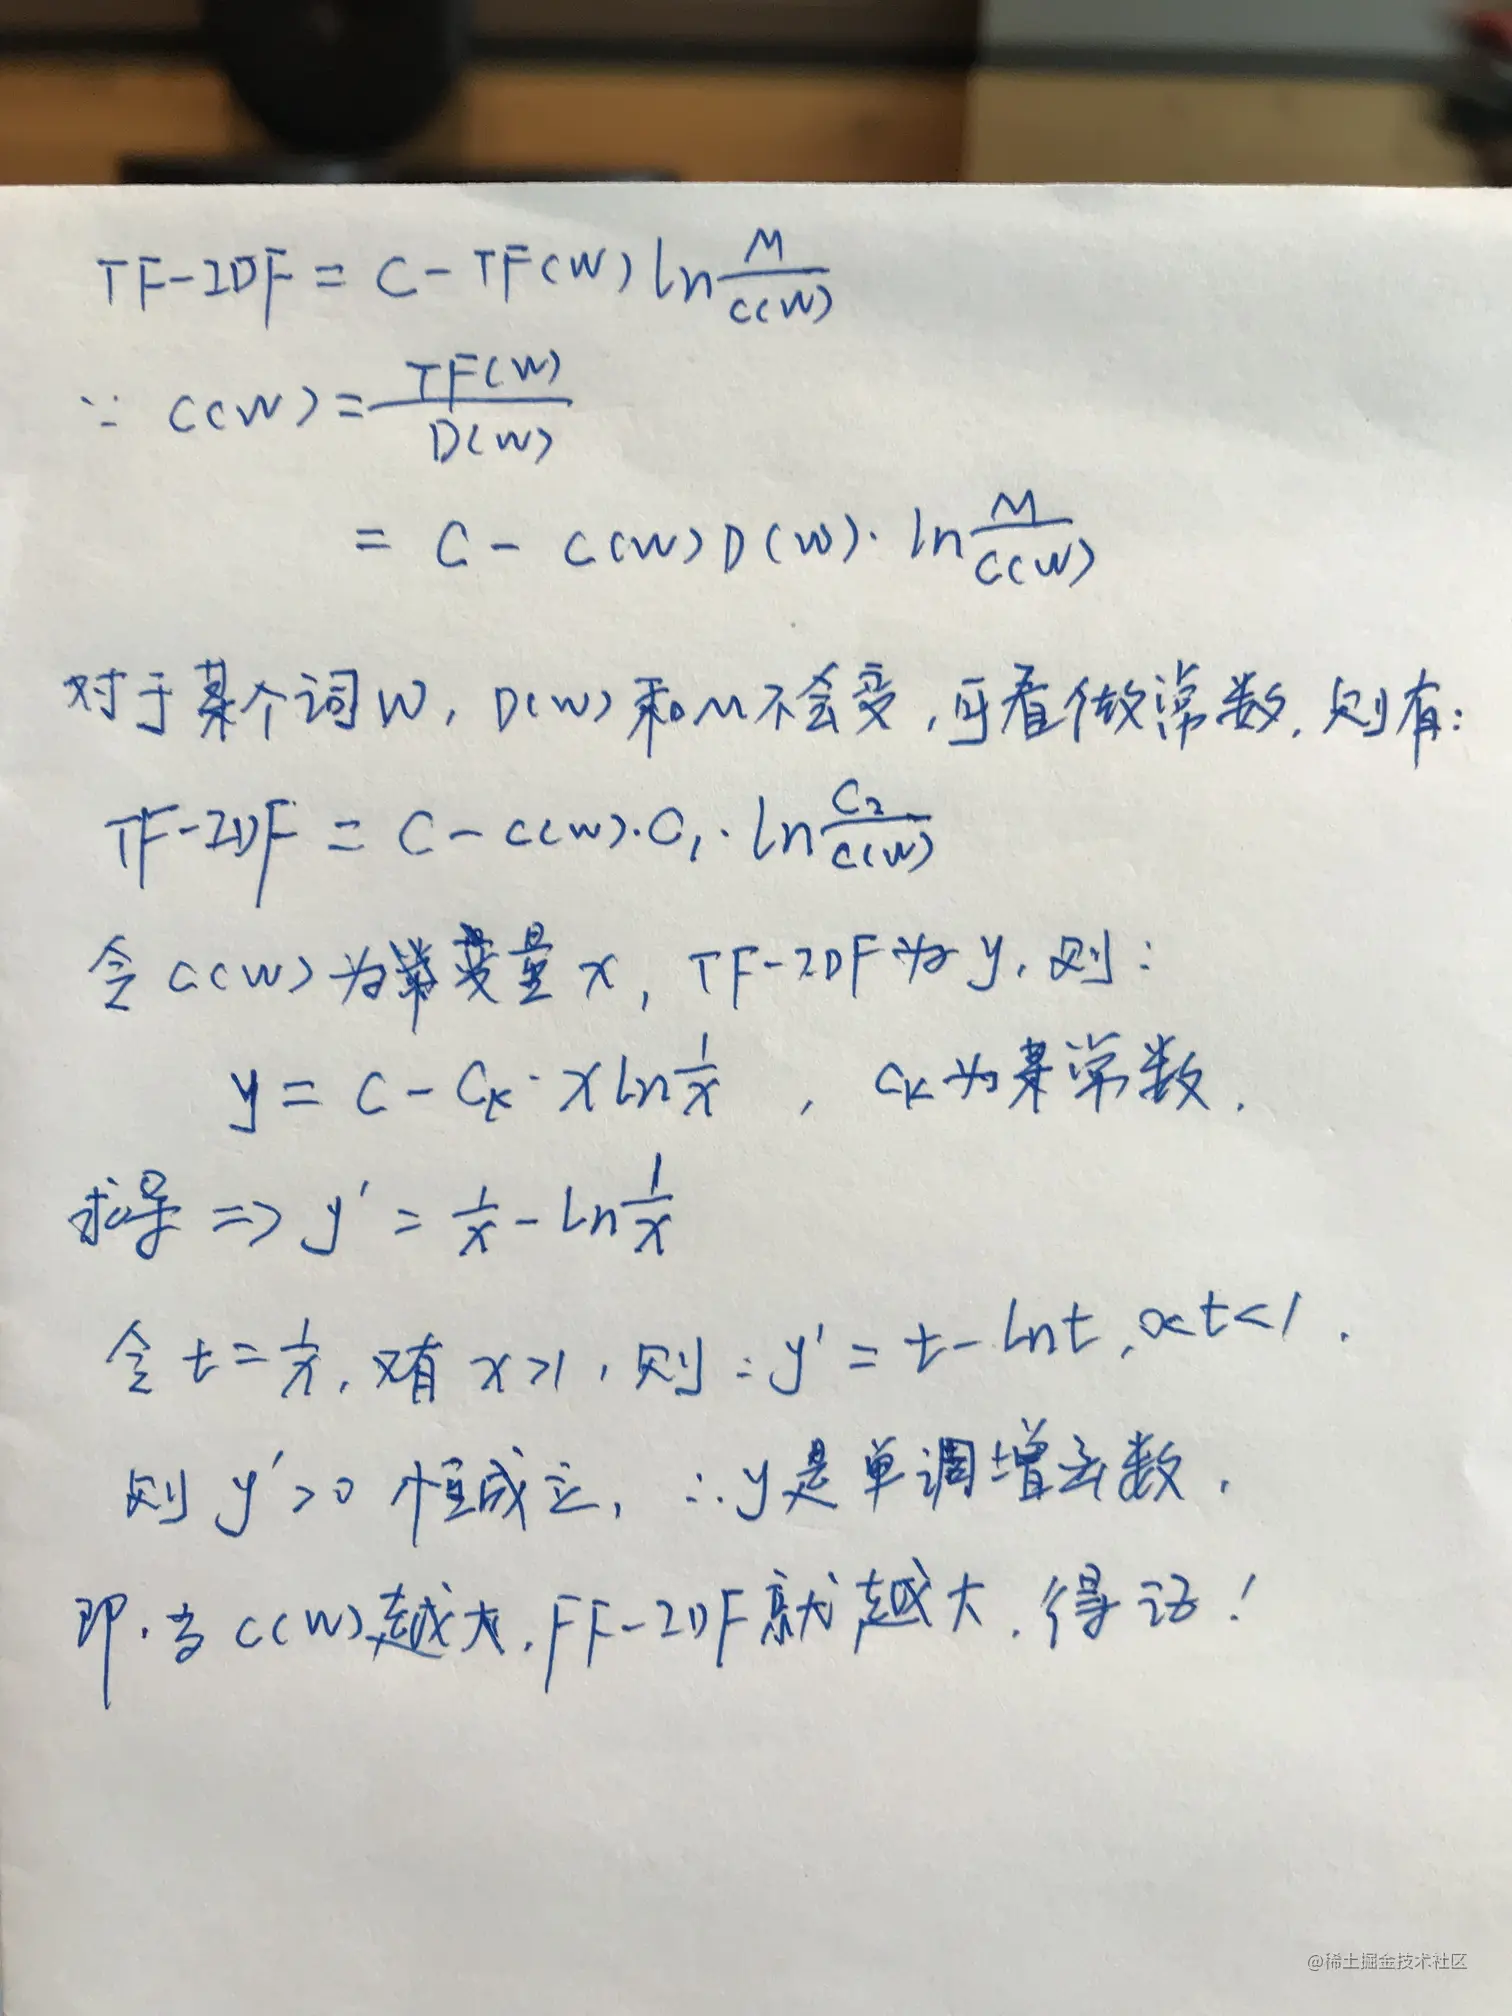 TF-IDF = C - TF(W) ln M/C(W)
∵ C(W) = TF(W)/D(W)
= C - C(W) D(W) · ln M/C(W)
对于某个词W, D(W)和M不会变, 可看做常数, 则有:
TF-IDF = C - C(W)·C₁· ln C₂/C(W)
令C(W)为变量x, TF-IDF为y, 则:
y = C - Cₖ· x ln 1/x , Cₖ为某常数.
求导 => y' = 1/x - ln 1/x
令t = 1/x, 又有x>1, 则: y' = t - lnt, 0<t<1.
则 y'>0 恒成立, ∴ y是单调增函数.
即·当C(W)越大, TF-IDF就越大. 得证!
@稀土掘金技术社区